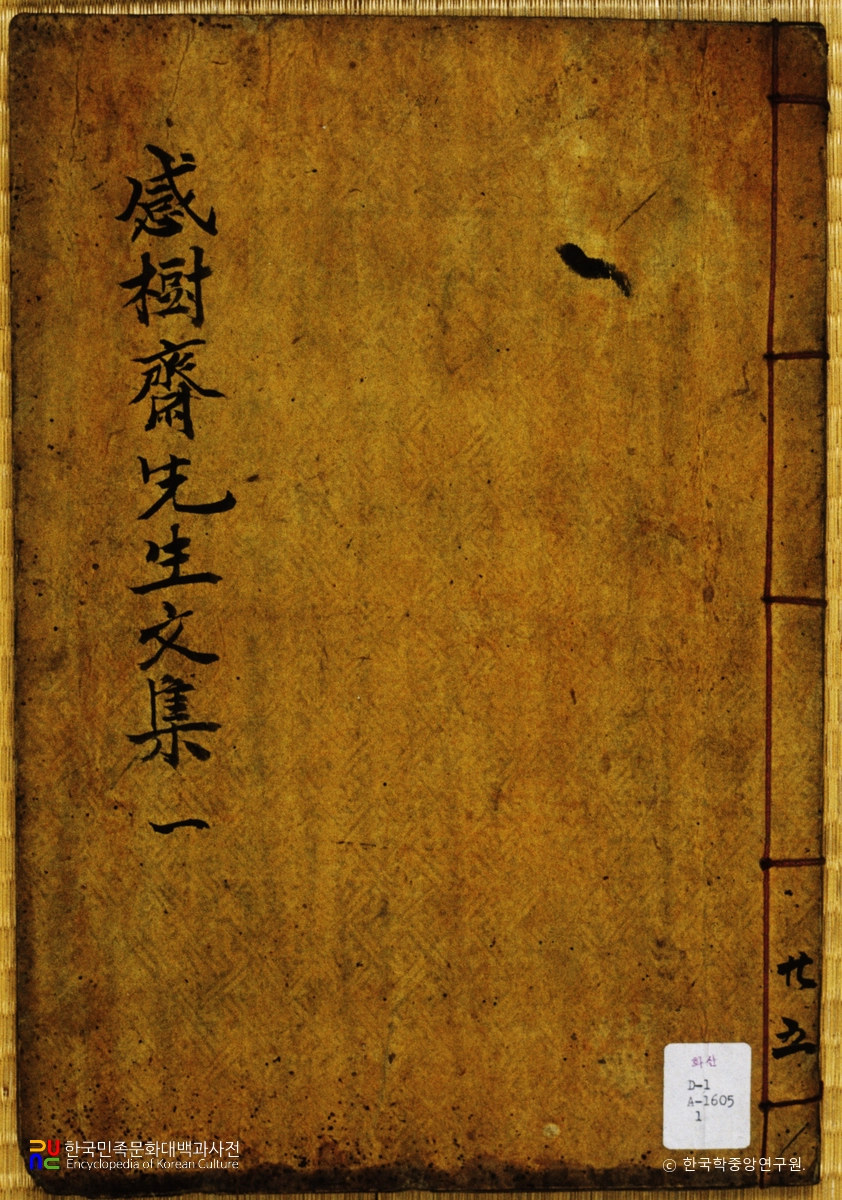 感樹齋先生文集 一
共五
화산
D-1
A-1605
1
한국민족문화대백과사전
Encyclopedia of Korean Culture
© 한국학중앙연구원.